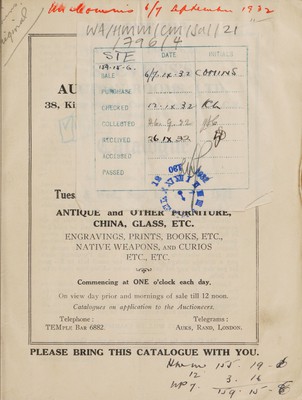 original
6/7 September 1932
WA/HMM/CM/Sal/21
/796/4
STE
DATE
DETAILS
159.15.6.
SALE 6/7.ix.32
PURCHASE
CHECKED 12.ix.32
COLLECTED 26.9.32
RECEIVED 26 IX 32
ACCESSED
PASSED
AU
38, Ki
Tues
ANTIQUE and OTHER FURNITURE,
CHINA, GLASS, ETC.
ENGRAVINGS, PRINTS, BOOKS, ETC.,
NATIVE WEAPONS, AND CURIOS
ETC., ETC.
Commencing at ONE o'clock each day.
On view day prior and mornings of sale till 12 noon.
Catalogues on application to the Auctioneers.
Telephone: Telegrams:
TEMple Bar 6882. Auks, Rand, London.
PLEASE BRING THIS CATALOGUE WITH YOU.
155. 19. 6
12
3. 16
159. 15. 6